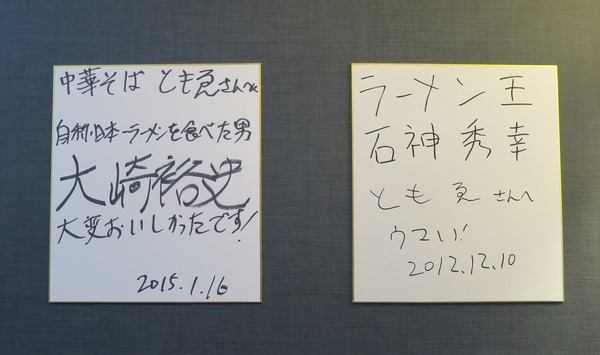 中華そば とも ゑさんへ
自称日本一ラーメンを食べた男
大崎裕史
大変おいしかったです!
2015.1.16
ラーメン王
石神秀幸
とも ゑ さんへ
ウマい!
2012.12.10